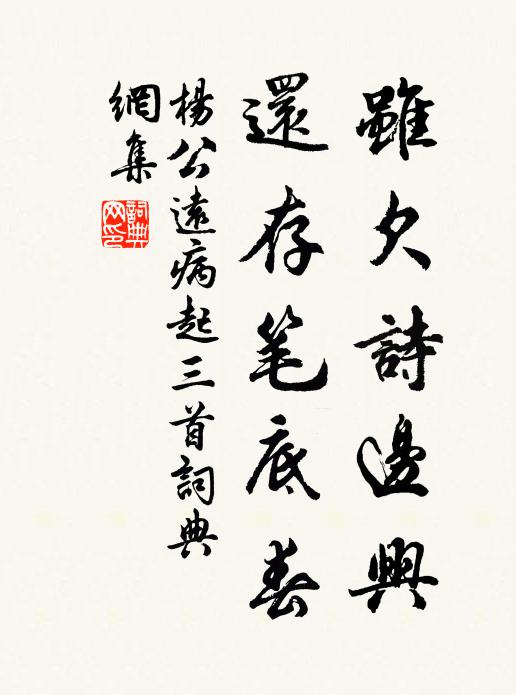 雖欠詩邊興
還存笔底春
楊公遠病起三首詞典
網集
詞典
网印